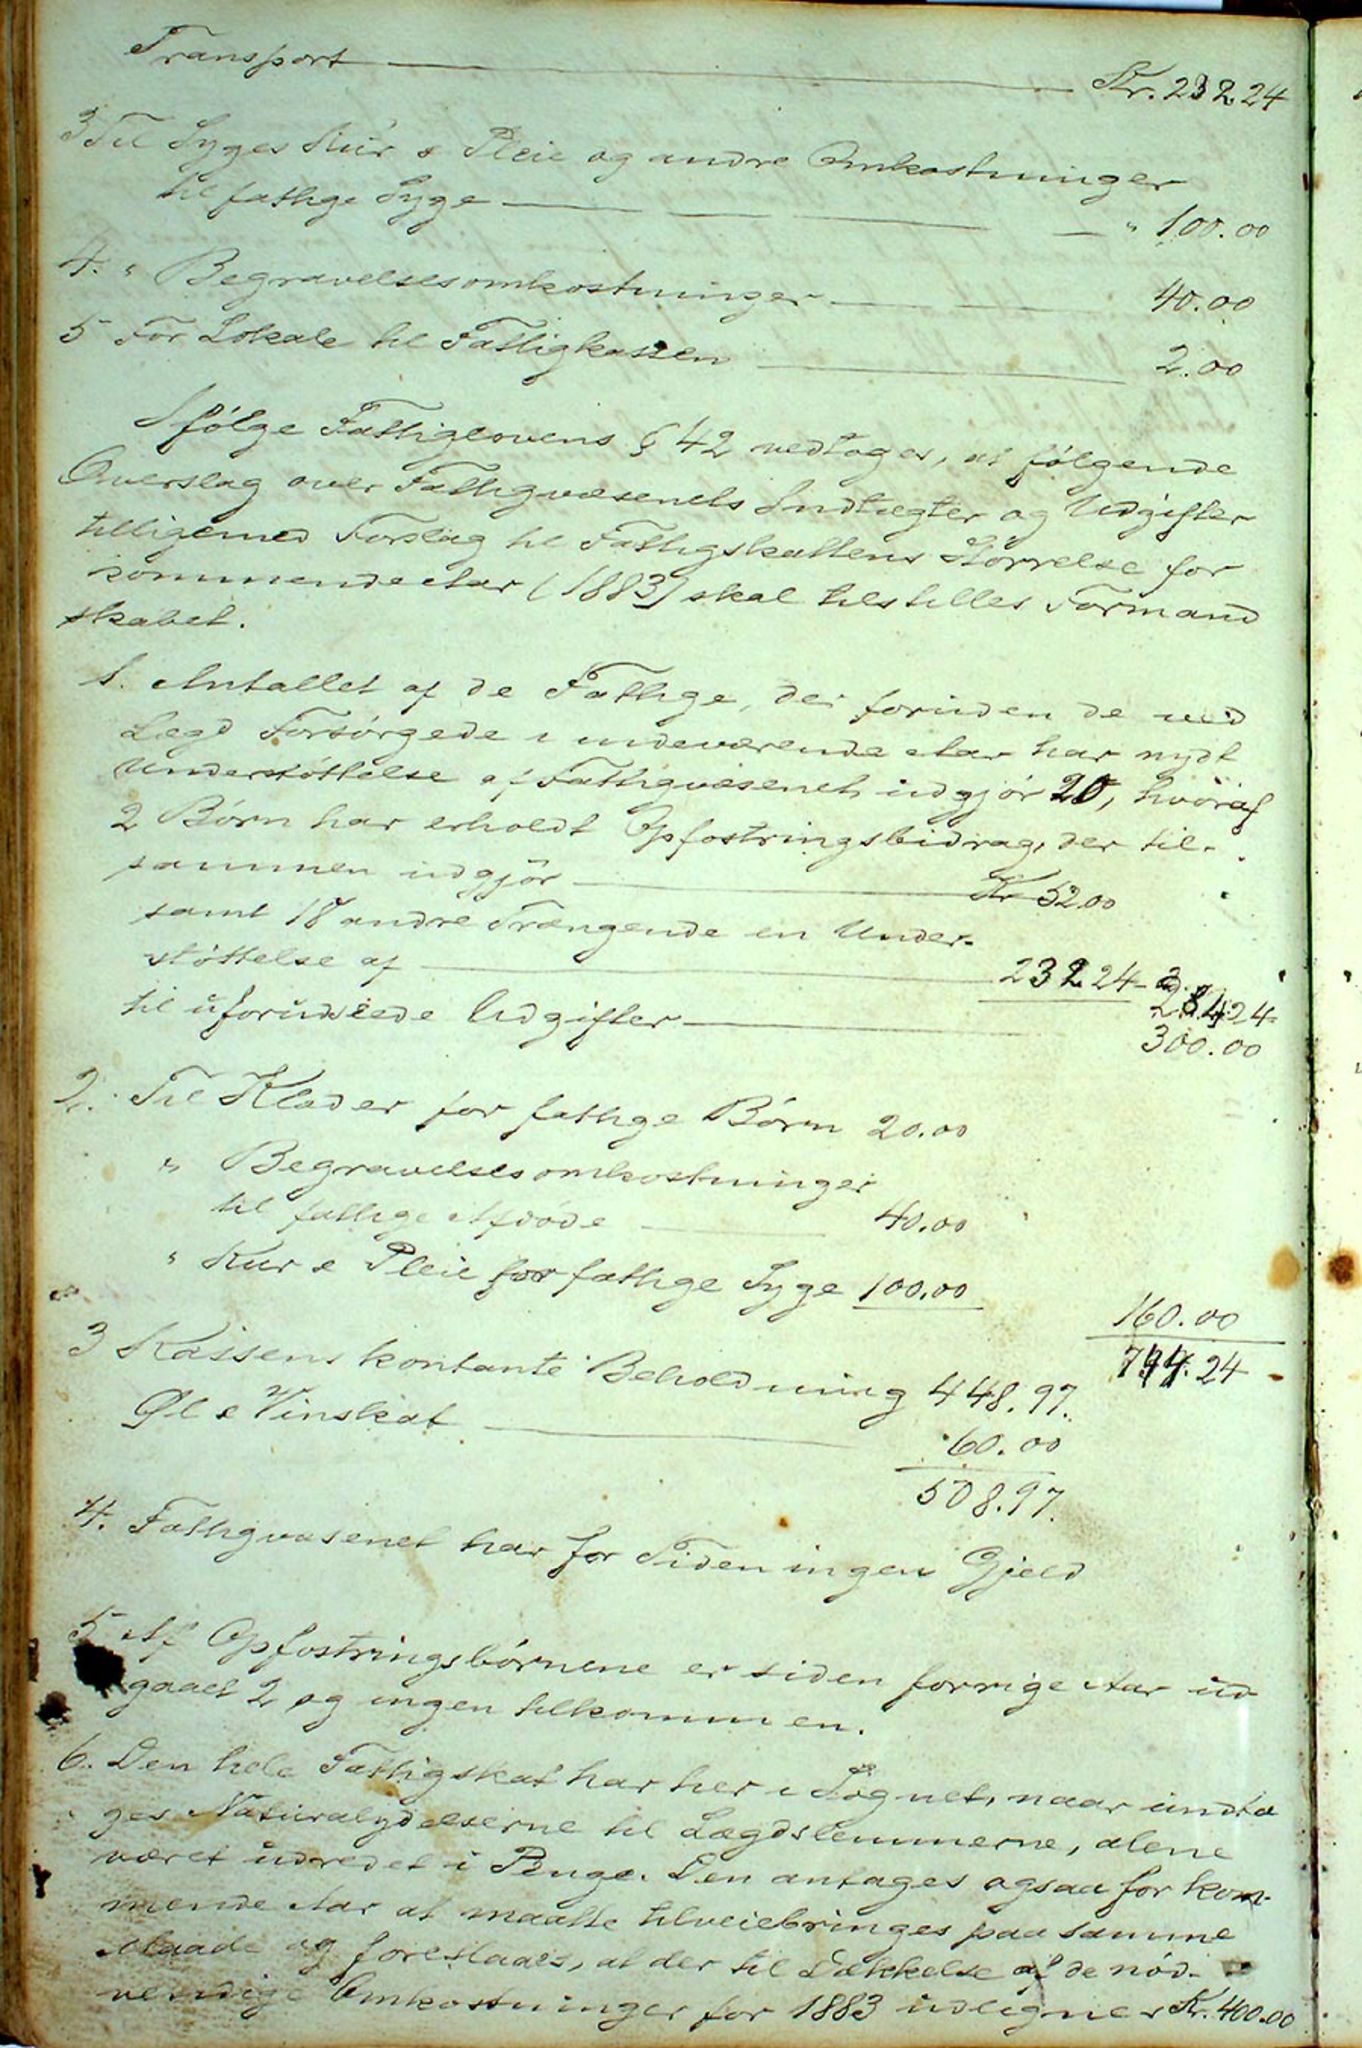 Transport — Kr. 232.24
3 Til Syges Kur & Pleie og andre Omkostninger
til fattige Syge — " 100.00
4. " Begravelsesomkostninger — 40.00
5 For Lokale til Fattigkassen — 2.00
Ifølge Fattiglovens § 42 vedtoges, at følgende
Overslag over Fattigvæsenets Indtægter og Udgifter
tilligemed Forslag til Fattigskattens Størrelse for
kommende Aar (1883) skal tilstilles Formand
skabet.
1. Antallet af de Fattige, der foruden de ved
Lægd Forsørgede i indeværende Aar har nydt
Understøttelse af Fattigvæsenet, udgjør 20, hvoraf
2 Børn har erholdt Opfostringsbidrag, der til-
sammen udgjør — Kr 52.00
samt 18 andre Trængende en Under-
støttelse af — 232.24 284.24
til uforudseede Udgifter — 300.00
2. Til Klæder for fattige Børn 20.00
" Begravelsesomkostninger
til fattige Afdøde — 40.00
" Kur & Pleie for fattige Syge 100.00
160.00
744.24
3 Kassens kontante Beholdning 448.97.
Øl & Vinskat — 60.00
508.97.
4. Fattigvæsenet har for Tiden ingen Gjeld
5 Af Opfostringsbørnene er siden forrige Aar ud-
gaaet 2 og ingen tilkommen.
6. Den hele Fattigskat har her i Sognet, naar undta
ges Naturalydelserne til Lægdslemmerne, alene
været udredet i Penge. Den antages ogsaa for kom-
mende Aar at maatte tilveiebringes paa samme
Maade og foreslaaes, at der til Dækkelse af de nød-
vendige Omkostninger for 1883 udlignes Kr. 400.00